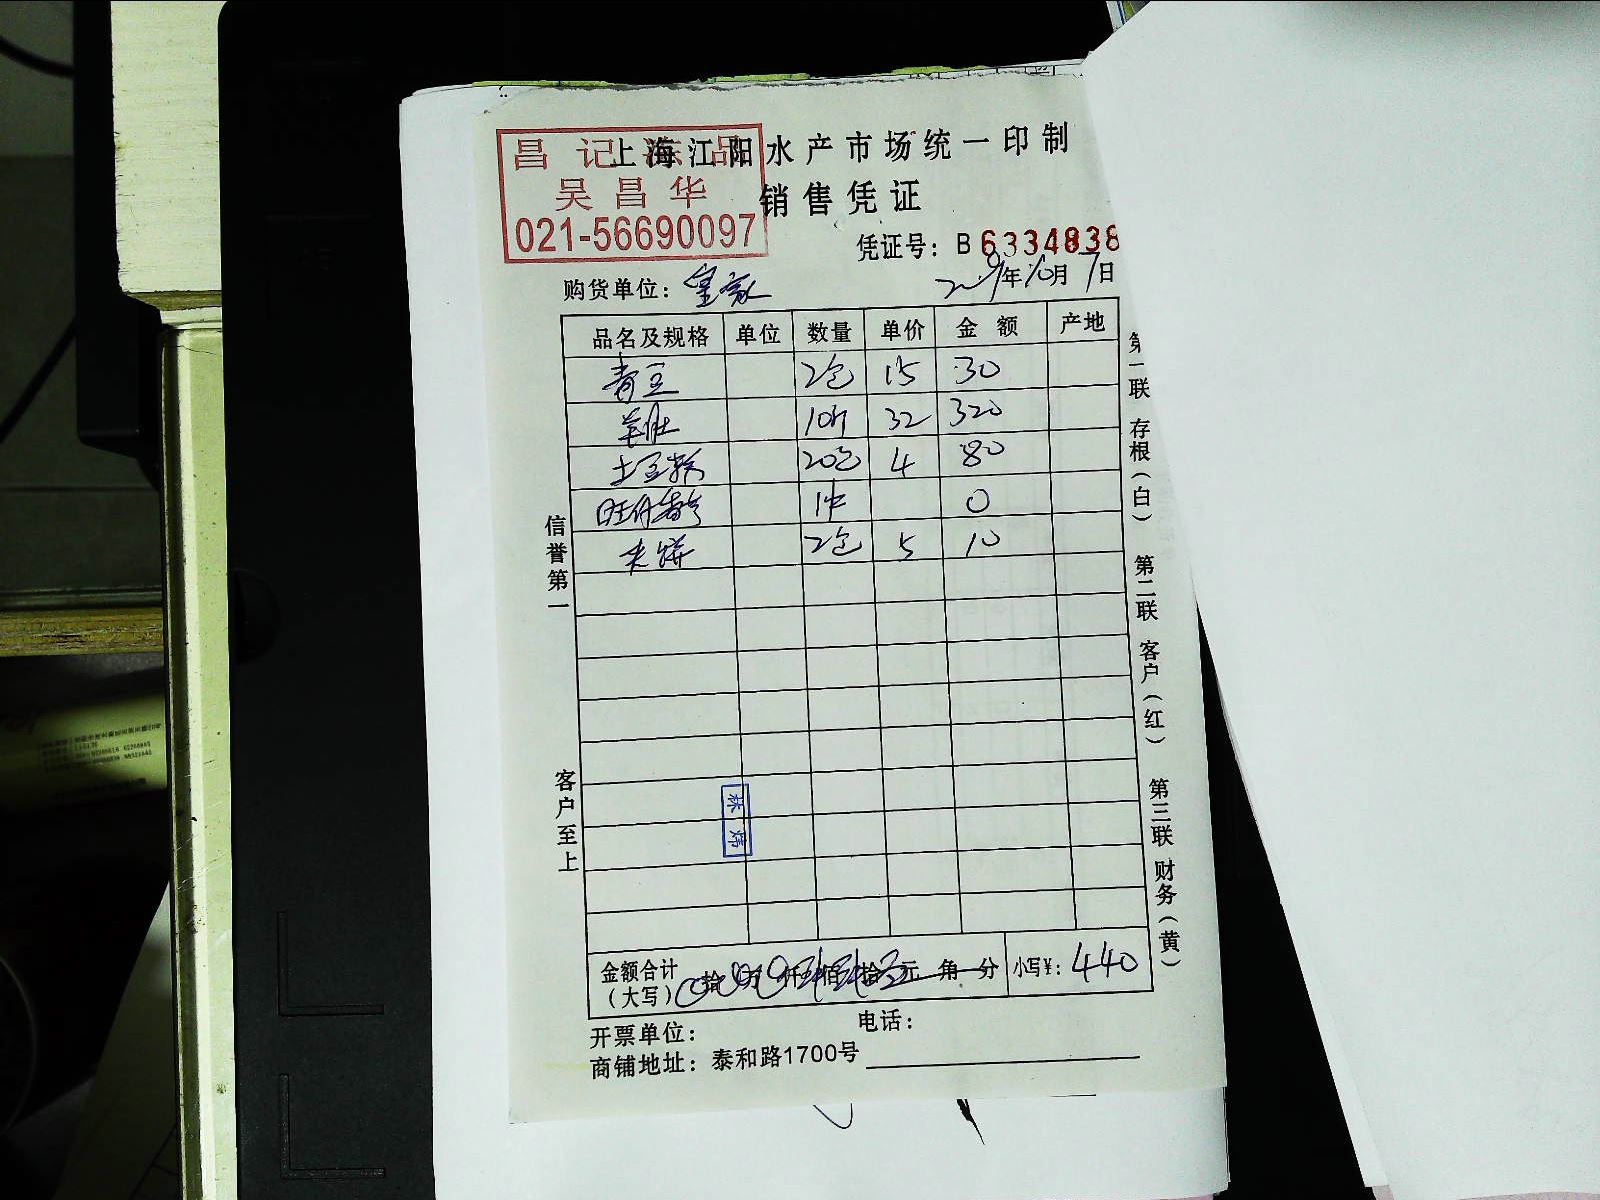 昌记冻品
吴昌华
021-56690097
上海江阳水产市场统一印制
销售凭证
凭证号：B 6334838
购货单位：皇家
2019年10月7日
品名及规格 单位 数量 单价 金额 产地
青豆 2包 15 30
羊肚 10斤 32 320
土豆粉 20包 4 80
1件 0
米饼 2包 5 10
信誉第一
客户至上
第一联 存根（白） 第二联 客户（红） 第三联 财务（黄）
林婷
金额合计（大写） 拾 万 仟 肆佰肆拾 元 角 分 小写¥：440
开票单位： 电话：
商铺地址：泰和路1700号